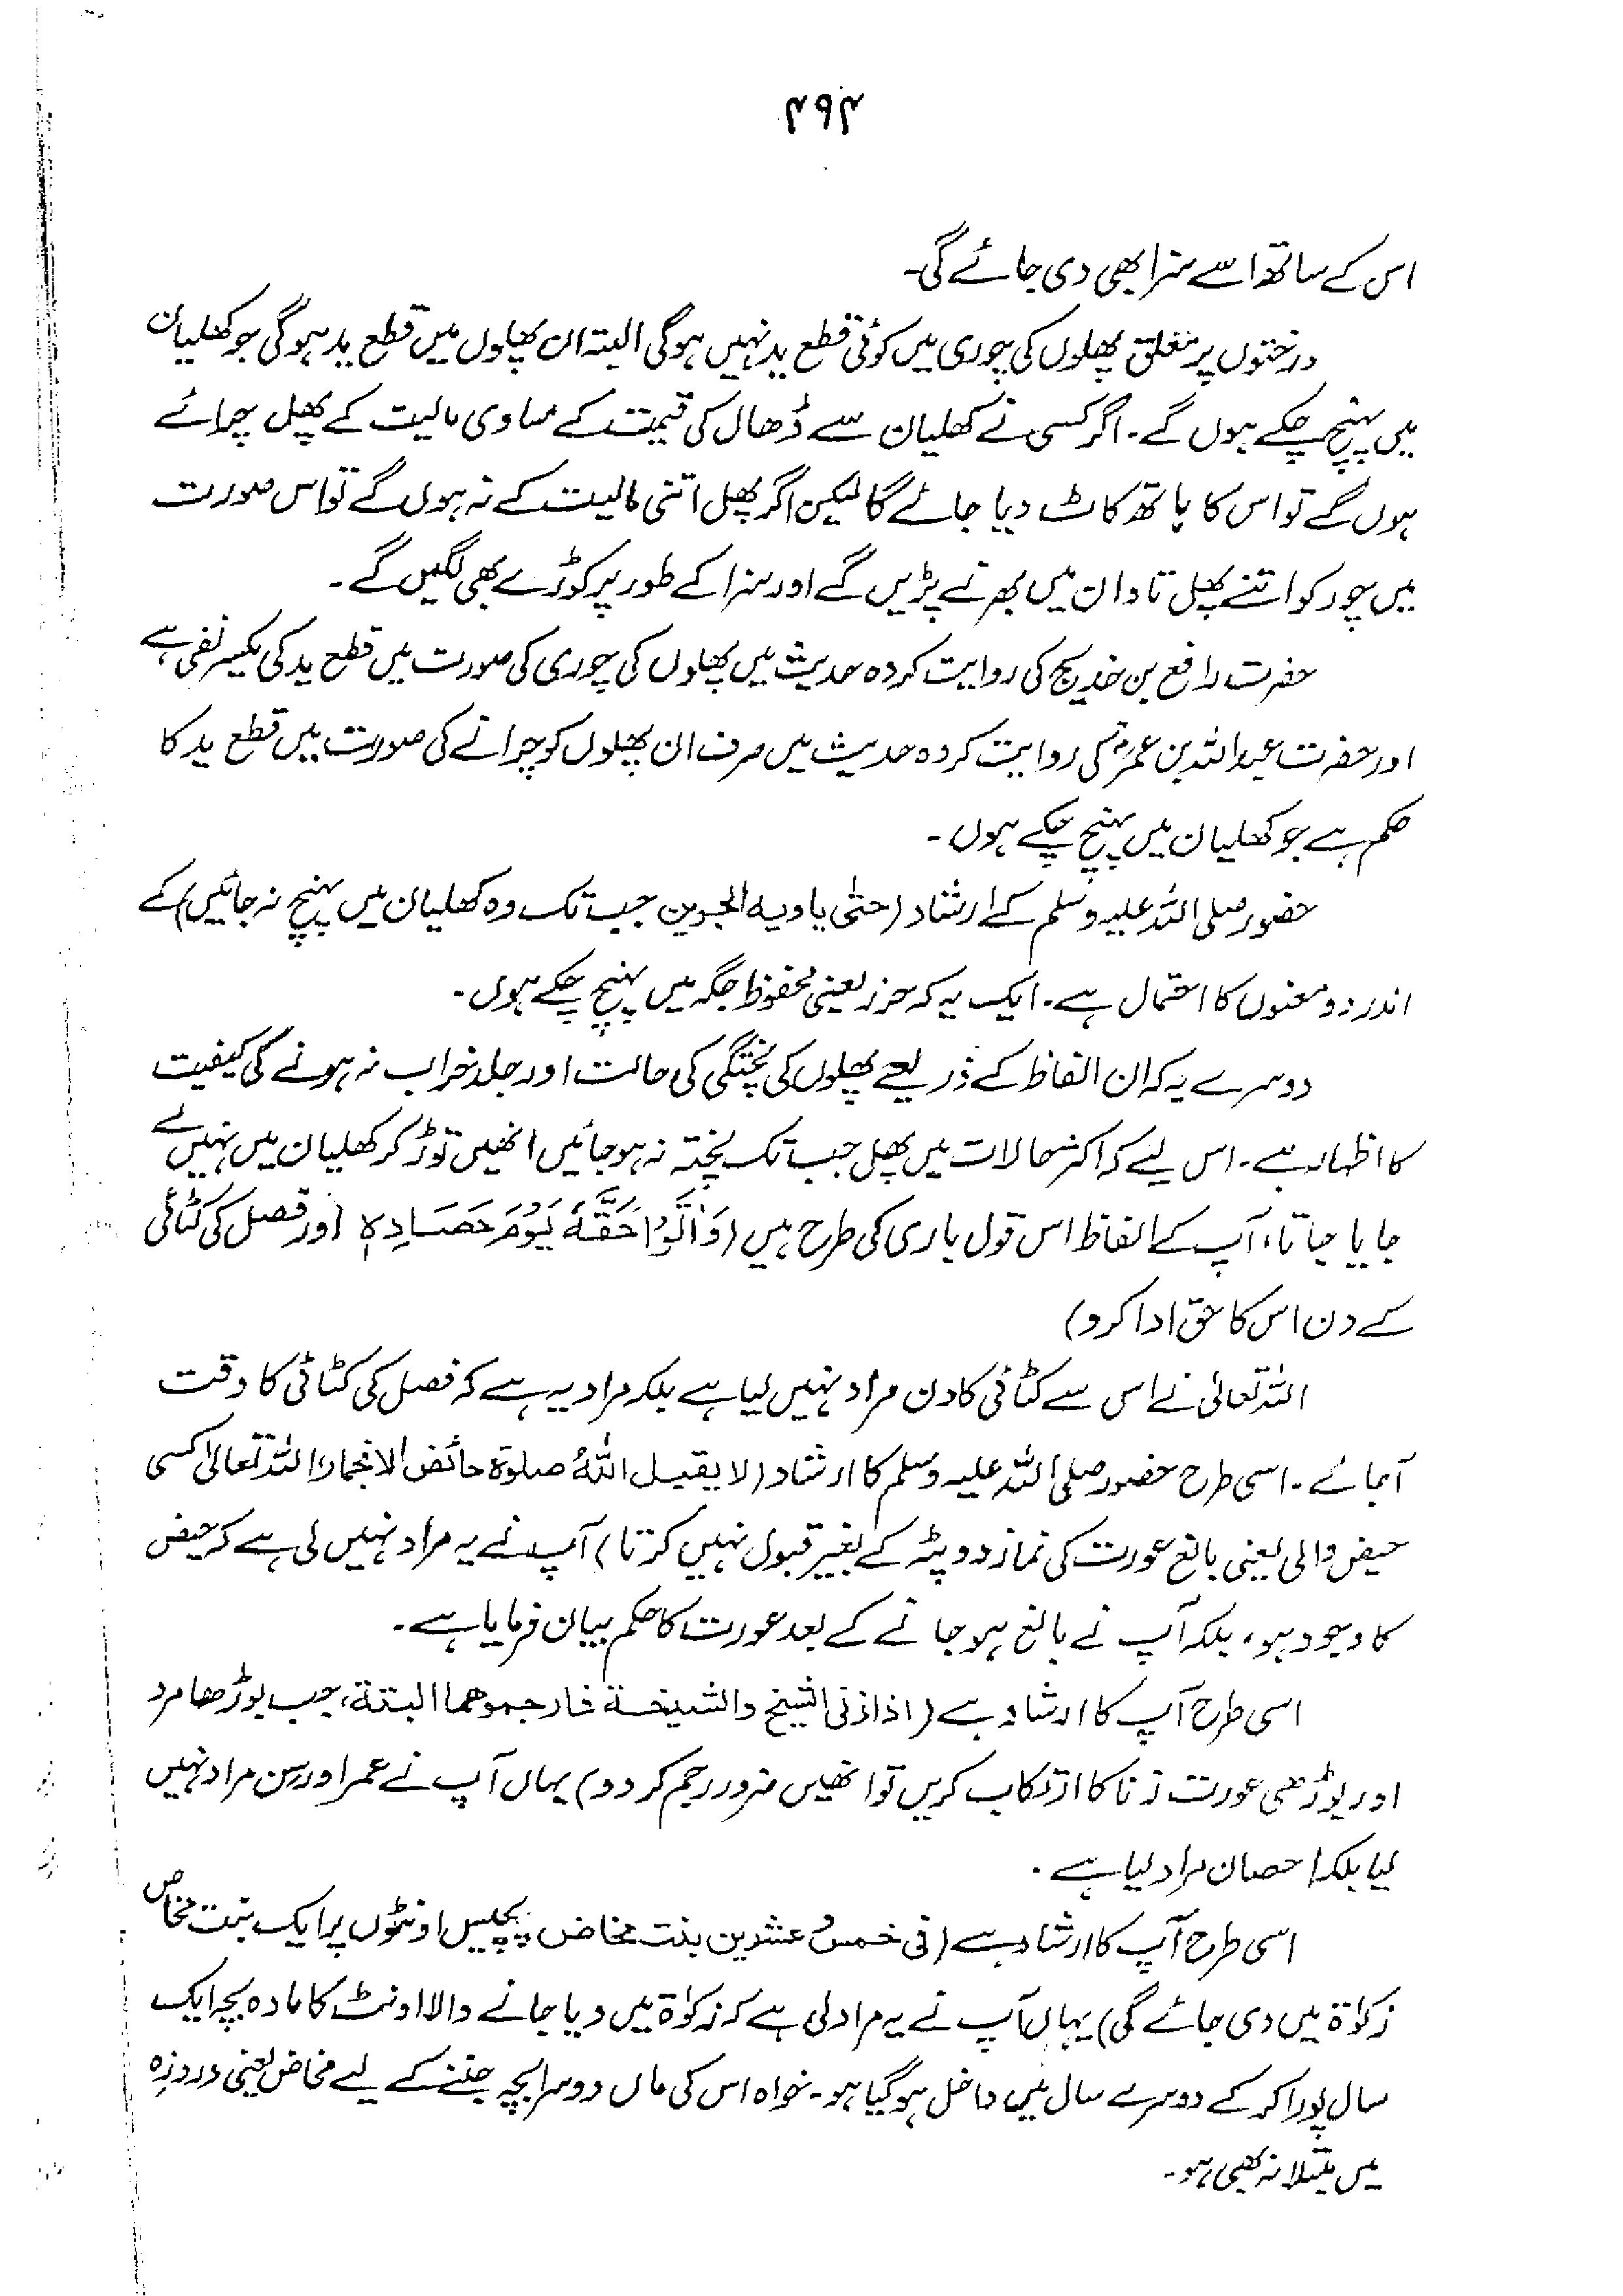 ۴۹۴
اس کے ساتھ اسے سزا بھی دی جائے گی۔
درختوں پر معلق پھلوں کی چوری میں کوئی قطع ید نہیں ہوگی البتہ ان پھلوں میں قطع ید ہوگی جو کھلیان
میں پہنچ چکے ہوں گے۔ اگر کسی نے کھلیان سے ڈھال کی قیمت کے مساوی مالیت کے پھل چرائے
ہوں گے تو اس کا ہاتھ کاٹ دیا جائے گا لیکن اگر پھل اتنی مالیت کے نہ ہوں گے تو اس صورت
میں چور کو اتنے پھل تاوان میں بھرنے پڑیں گے اور سزا کے طور پر کوڑے بھی لگیں گے۔
حضرت رافع بن خدیج کی روایت کردہ حدیث میں پھلوں کی چوری کی صورت میں قطع ید کی یکسر نفی ہے
اور حضرت عبداللہ بن عمرؓ کی روایت کردہ حدیث میں صرف ان پھلوں کو چرانے کی صورت میں قطع ید کا
حکم ہے جو کھلیان میں پہنچ چکے ہوں۔
حضور صلی اللہ علیہ وسلم کے ارشاد (حتٰی یاویہ الجرین جب تک وہ کھلیان میں پہنچ نہ جائیں) کے
اندر دو معنوں کا احتمال ہے۔ ایک یہ کہ حرز یعنی محفوظ جگہ میں پہنچ چکے ہوں۔
دوسرے یہ کہ ان الفاظ کے ذریعے پھلوں کی پختگی کی حالت اور جلد خراب نہ ہونے کی کیفیت
کا اظہار ہے۔ اس لیے کہ اکثر حالات میں پھل جب تک پختہ نہ ہو جائیں انھیں توڑ کر کھلیان میں نہیں لے
جایا جاتا، آپ کے الفاظ اس قول باری کی طرح ہیں (وَاٰتُوْا حَقَّهٗ يَوْمَ حَصَادِهٖ اور فصل کی کٹائی
کے دن اس کا حق ادا کرو)
اللہ تعالیٰ نے اس سے کٹائی کا دن مراد نہیں لیا ہے بلکہ مراد یہ ہے کہ فصل کی کٹائی کا وقت
آجائے۔ اسی طرح حضور صلی اللہ علیہ وسلم کا ارشاد (لا یقبل اللهُ صلوة حائض الا بخمار، اللہ تعالیٰ کسی
حیض والی یعنی بالغ عورت کی نماز دوپٹہ کے بغیر قبول نہیں کرتا) آپ نے یہ مراد نہیں لی ہے کہ حیض
کا وجود ہو، بلکہ آپ نے بالغ ہو جانے کے بعد عورت کا حکم بیان فرمایا ہے۔
اسی طرح آپ کا ارشاد ہے (اذا زنی الشیخ والشیخة فارجموهما البتة، جب بوڑھا مرد
اور بوڑھی عورت زنا کا ارتکاب کریں تو انھیں ضرور رجم کر دو) یہاں آپ نے عمر اور سن مراد نہیں
لیا بلکہ احصان مراد لیا ہے۔
اسی طرح آپ کا ارشاد ہے (فی خمس و عشرین بنت مخاض پچیس اونٹوں پر ایک بنت مخاض
زکوٰۃ میں دی جائے گی) یہاں آپ نے یہ مراد لی ہے کہ زکوٰۃ میں دیا جانے والا اونٹ کا مادہ بچہ ایک
سال پورا کر کے دوسرے سال میں داخل ہو گیا ہو۔ خواہ اس کی ماں دوسرا بچہ جننے کے لیے مخاض یعنی دردزہ
میں مبتلا نہ بھی ہو۔